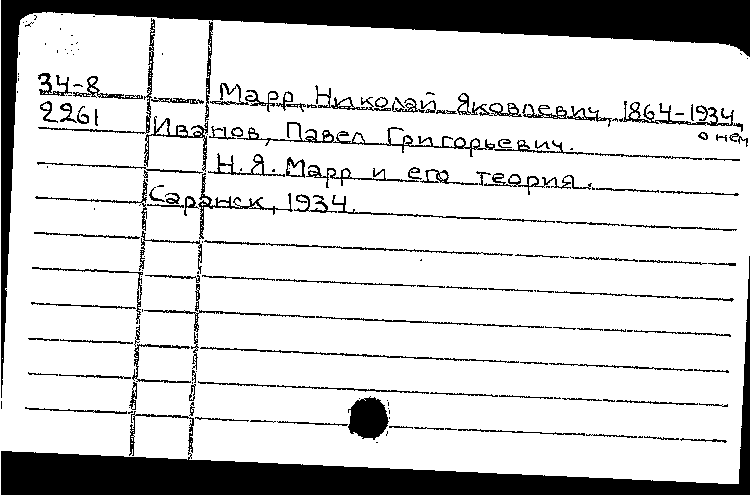 34-8 Марр, Николай Яковлевич, 1864-1934,
о нем
2261 Иванов, Павел Григорьевич.
Н.Я. Марр и его теория.
Саранск, 1934.